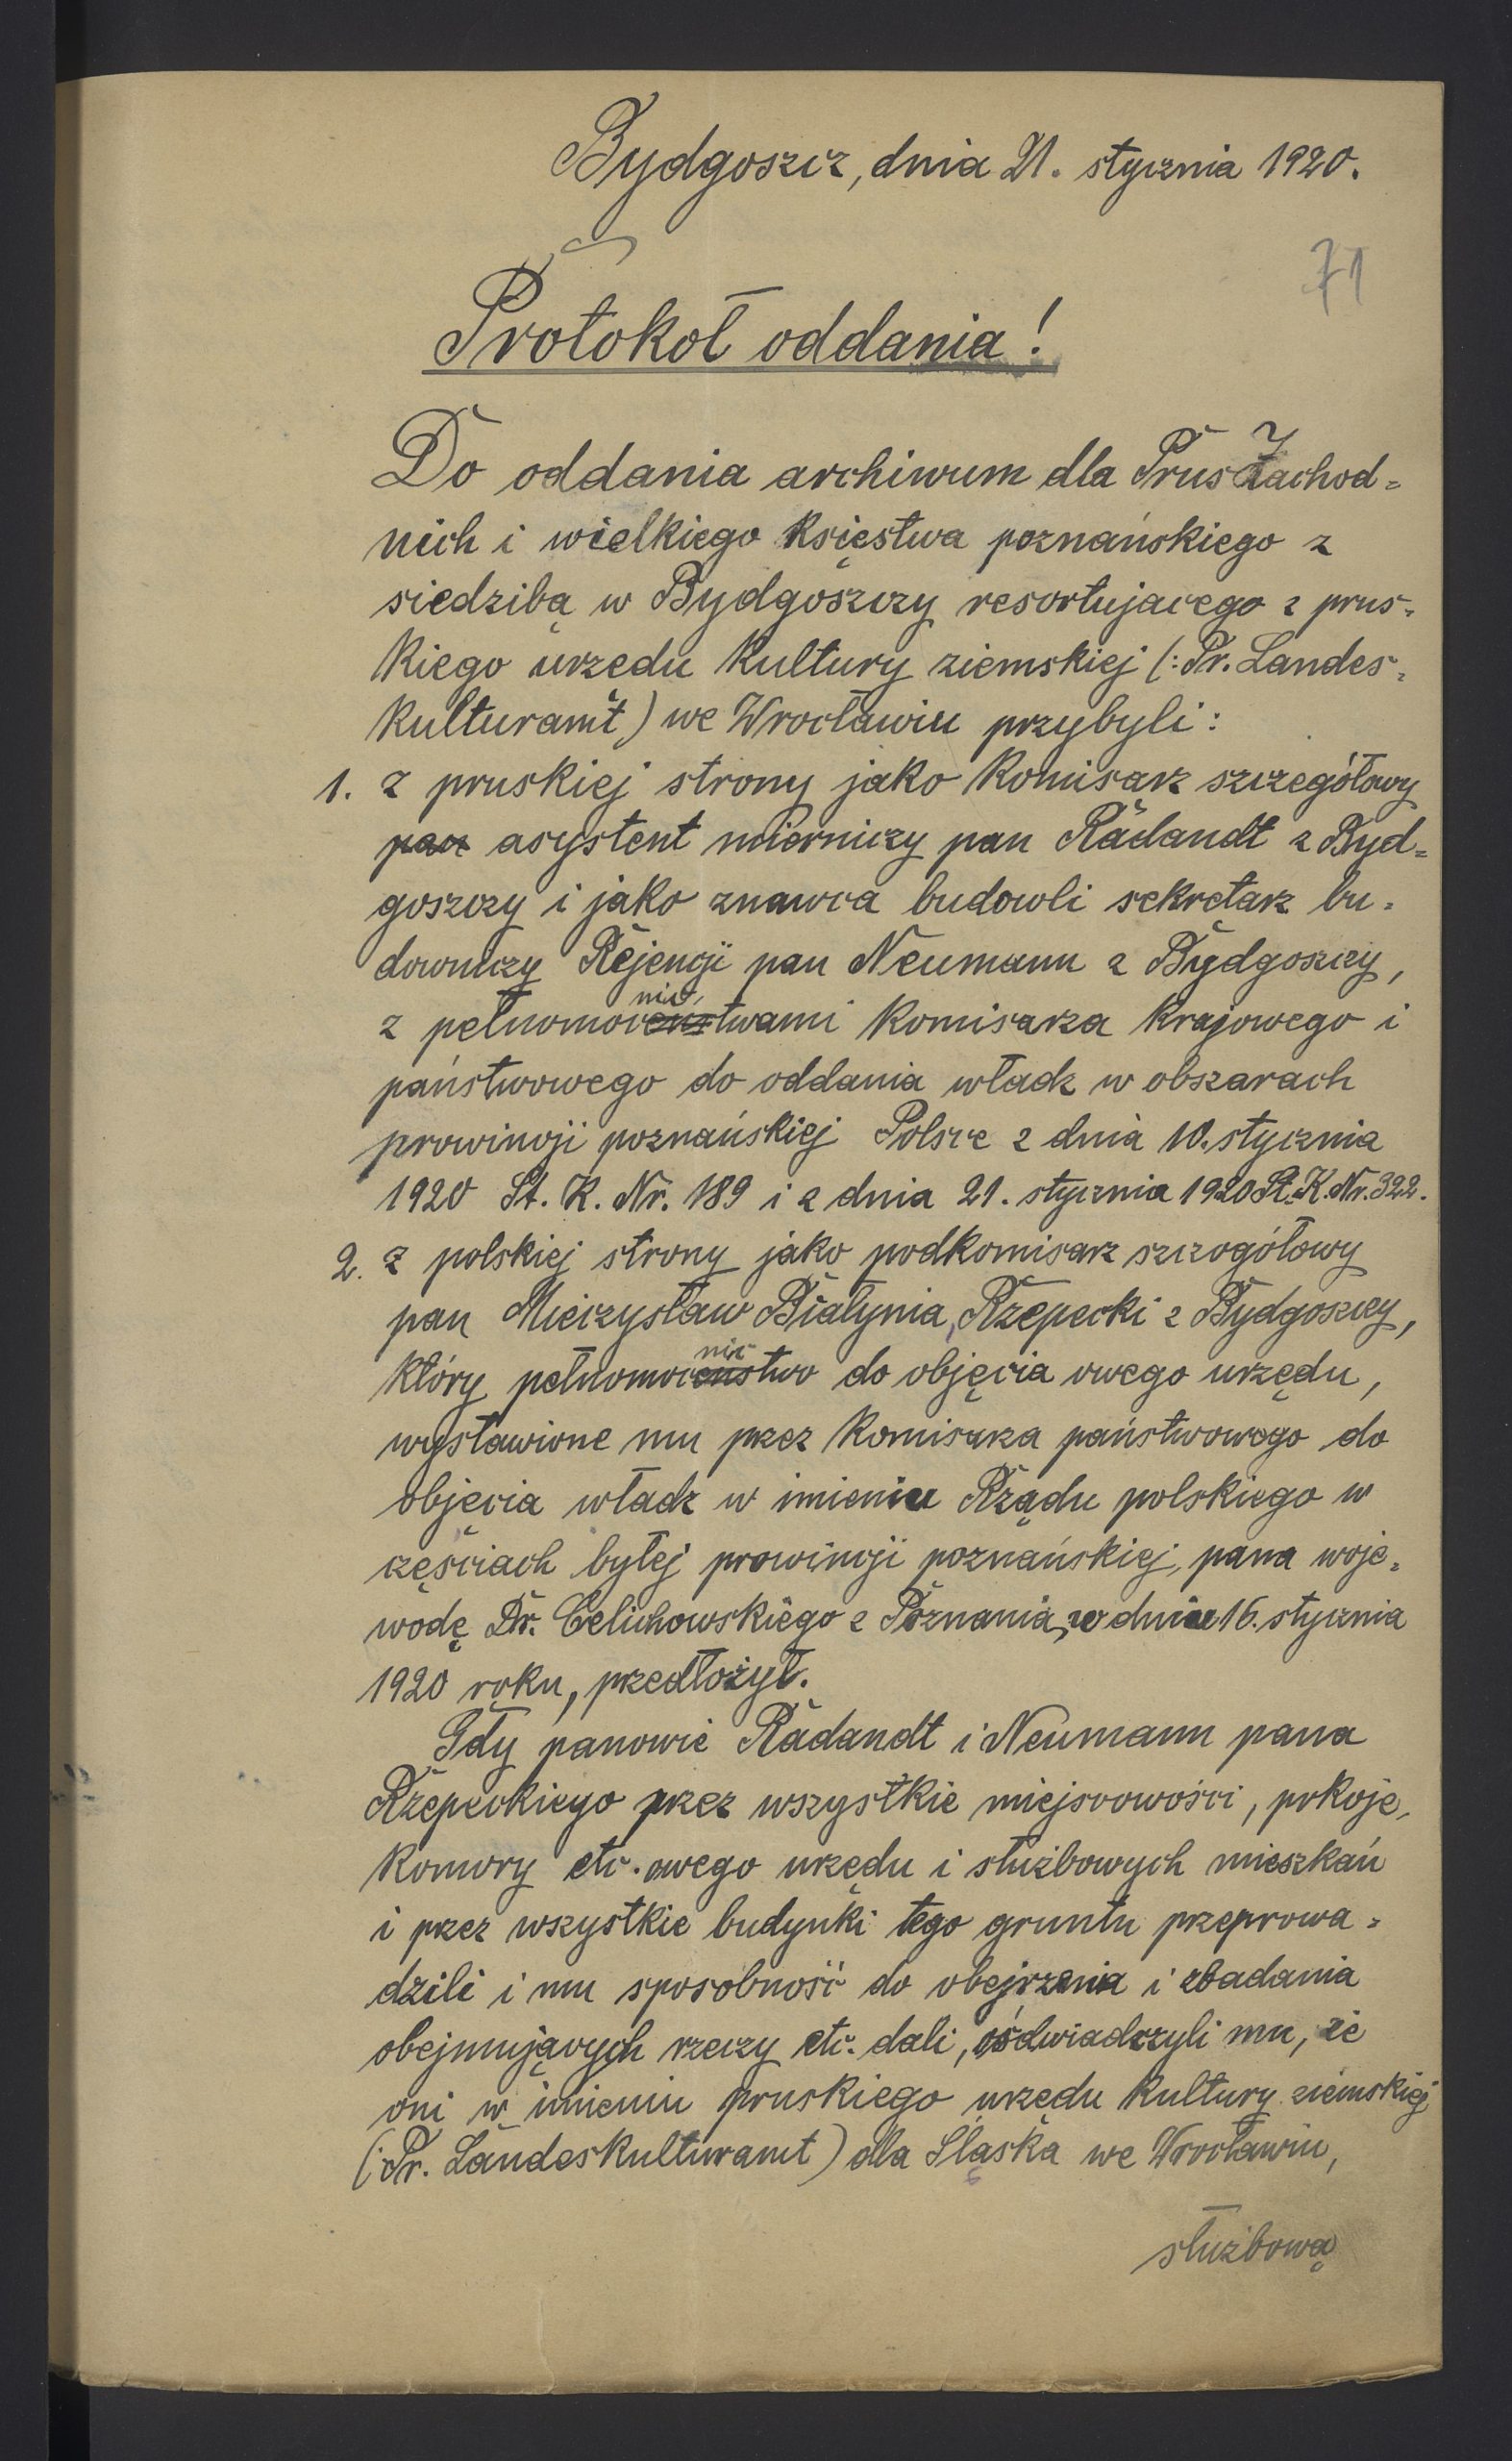 Bydgoszcz, dnia 21. stycznia 1920.
71
Protokoł oddania!
Do oddania archiwum dla Prus Zachod=
nich i wielkiego księstwa poznańskiego z
siedzibą w Bydgoszczy resortującego z prus=
kiego urzedu kultury ziemskiej (: Pr. Landes=
kulturamt) we Wrocławiu przybyli:
1. z pruskiej strony jako komisarz szczegółowy
pan asystent mierniczy pan Radandt z Byd=
goszczy i jako znawca budowli sekretarz bu=
downiczy Rejencji pan Neumann z Bydgoszczy,
nic
z pełnomocenstwami komisarza krajowego i
państwowego do oddania władz w obszarach
prowincji poznańskiej Polsce z dnia 10. stycznia
1920 St. K. Nr. 189 i z dnia 21. stycznia 1920 St. K. Nr. 322.
2. z polskiej strony jako podkomisarz szczogółowy
pan Mieczysław Białynia, Rzepecki z Bydgoszczy,
nic
który pełnomocenstwo do objęcia owego urzędu,
wystawione mu przez komisarza państwowego do
objęcia władz w imieniu Rządu polskiego w
częściach byłej prowincji poznańskiej, pana woje=
wodę Dr. Celichowskiego z Poznania, w dniu 16. stycznia
1920 roku, przedłożył.
Gdy panowie Radandt i Neumann pana
Rzepeckiego przez wszystkie miejscowości, pokoje,
komory etc. owego urzędu i służbowych mieszkań
i przez wszystkie budynki tego gruntu przeprowa=
dzili i mu sposobność do obejrzenia i zbadania
obejmujących rzeczy etc. dali, oświadczyli mu, że
oni w imieniu pruskiego urzędu kultury ziemskiej
(: Pr. Landeskulturamt) dla Śląska we Wrocławiu,
służbową